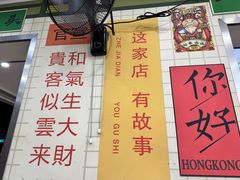 头
和氣生大財
貴客似雲来
这家店 有故事
ZHE JIA DIAN YOU GU SHI
你好
HONGKONG